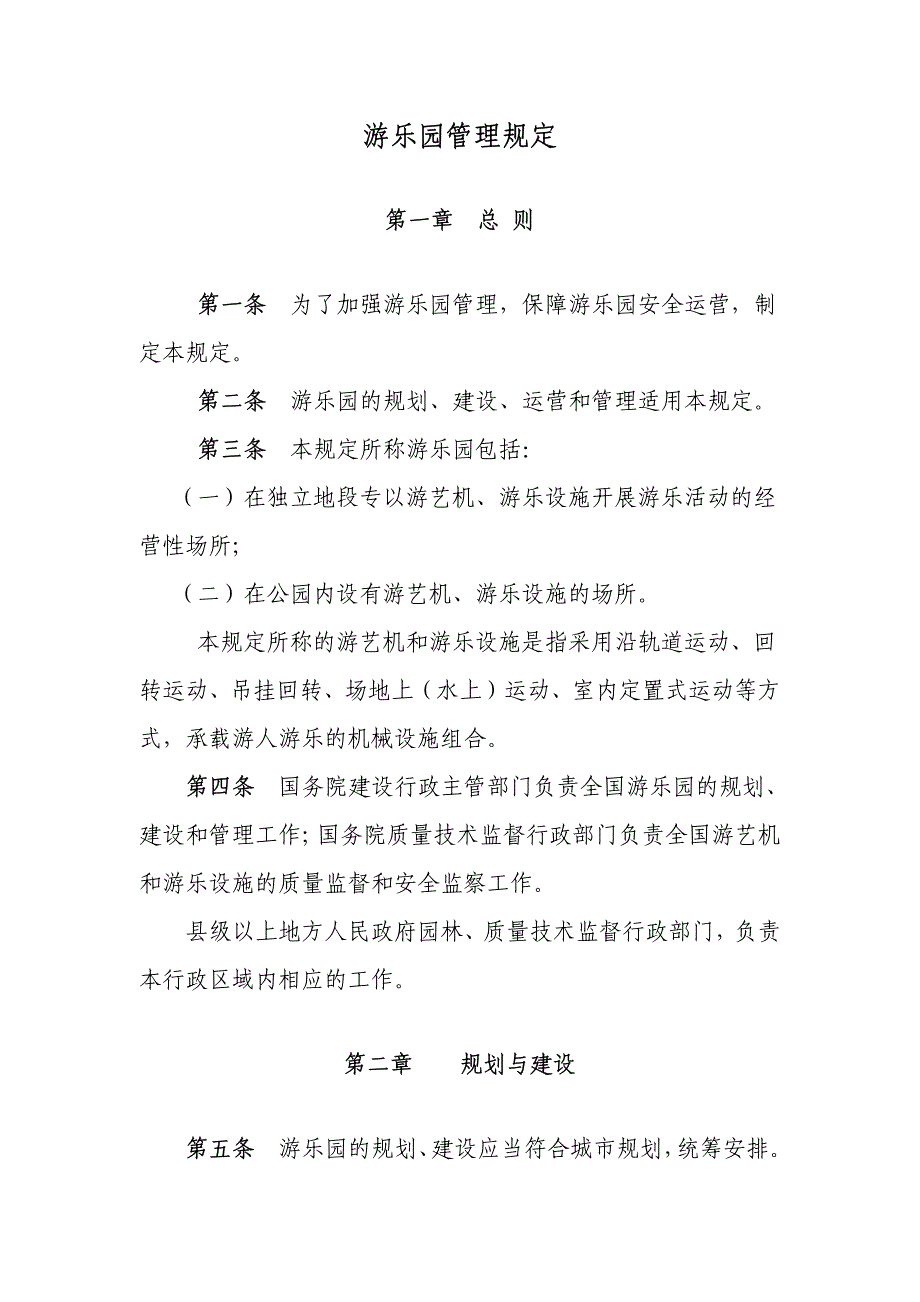 游乐园管理规定
第一章 总 则
第一条 为了加强游乐园管理，保障游乐园安全运营，制
定本规定。
第二条 游乐园的规划、建设、运营和管理适用本规定。
第三条 本规定所称游乐园包括：
（一）在独立地段专以游艺机、游乐设施开展游乐活动的经
营性场所；
（二）在公园内设有游艺机、游乐设施的场所。
本规定所称的游艺机和游乐设施是指采用沿轨道运动、回
转运动、吊挂回转、场地上（水上）运动、室内定置式运动等方
式，承载游人游乐的机械设施组合。
第四条 国务院建设行政主管部门负责全国游乐园的规划、
建设和管理工作；国务院质量技术监督行政部门负责全国游艺机
和游乐设施的质量监督和安全监察工作。
县级以上地方人民政府园林、质量技术监督行政部门，负责
本行政区域内相应的工作。
第二章 规划与建设
第五条 游乐园的规划、建设应当符合城市规划，统筹安排。